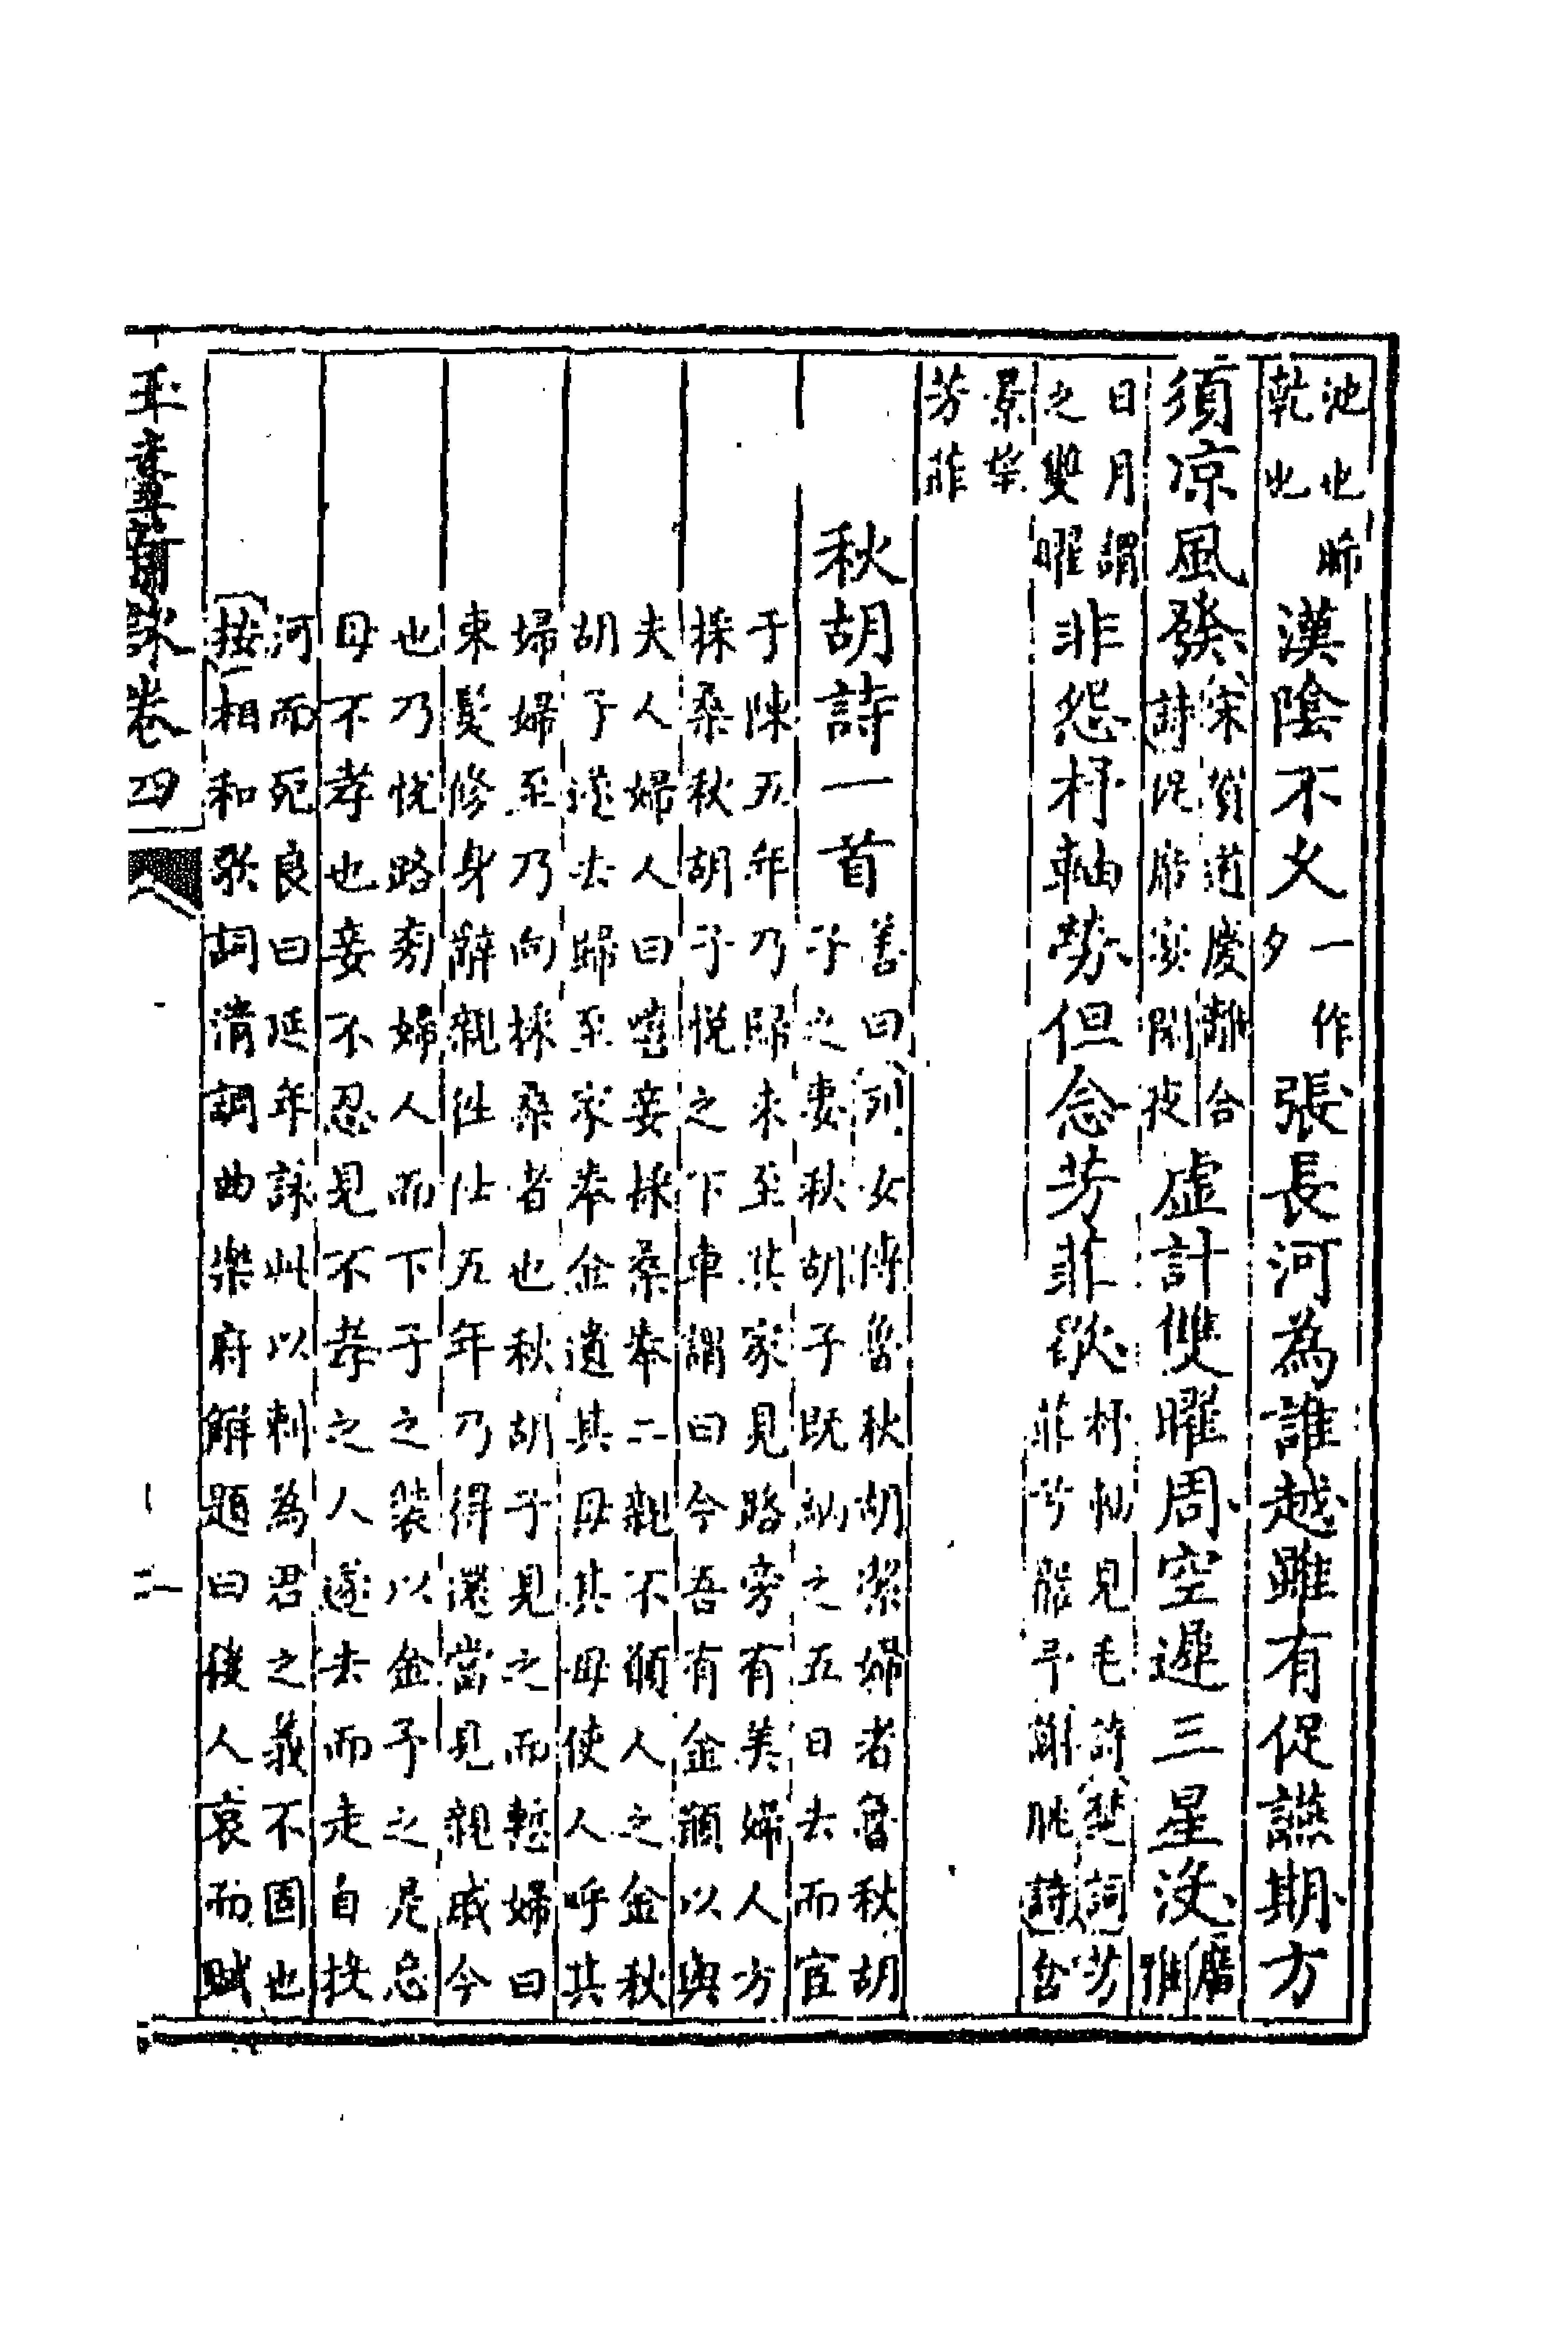 池也晞
乾也
漢陰不久
一作
夕
張長河為誰越雖有促讌期方
須凉風發
宋賀道慶離合
詩促席宴閑夜
虛計雙曜周空遲三星没
廣
雅
日月謂
之雙曜
非怨杼軸勞但念芳菲歇
杼柚見毛詩楚詞芳
菲兮 謝朓詩
景華
芳菲
秋胡詩一首
善曰列女傳魯秋胡潔婦者魯秋胡
子之妻秋胡子既納之五日去而宦
于陳五年乃歸未至其家見路旁有美婦人方
採桑秋胡子悅之下車謂曰今吾有金願以與
夫人婦人曰嘻妾採桑奉二親不願人之金秋
胡子遂去歸至家奉金遺其母其母使人呼其
婦婦至乃向採桑者也秋胡子見之而慙婦曰
束髮修身辭親往仕五年乃得還當見親戚今
也乃悅路旁婦人而下子之裝以金予之是忘
母不孝也妾不忍見不孝之人遂去而走自投
河而死良曰延年詠此以刺為君之義不固也
按相和歌詞清調曲樂府解題曰後人哀而賦
玉臺新詠卷四
二